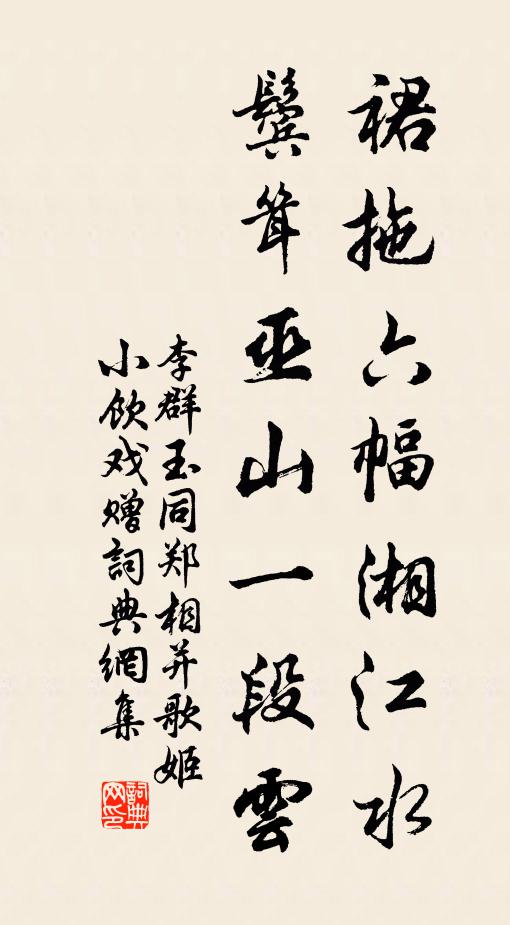 裙拖六幅湘江水
鬓耸巫山一段雲
李群玉同郑相并歌姬
小饮戏赠詞典網集
詞典
网印